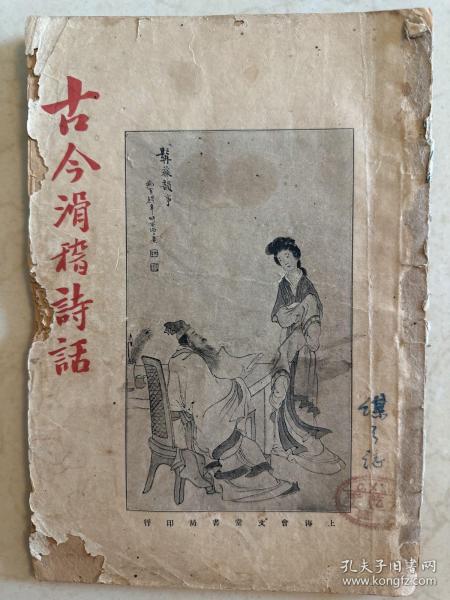 古今滑稽詩話
髯蘇韻事
行印局書堂文會海上
孔夫子旧书网
www.kongfz.com